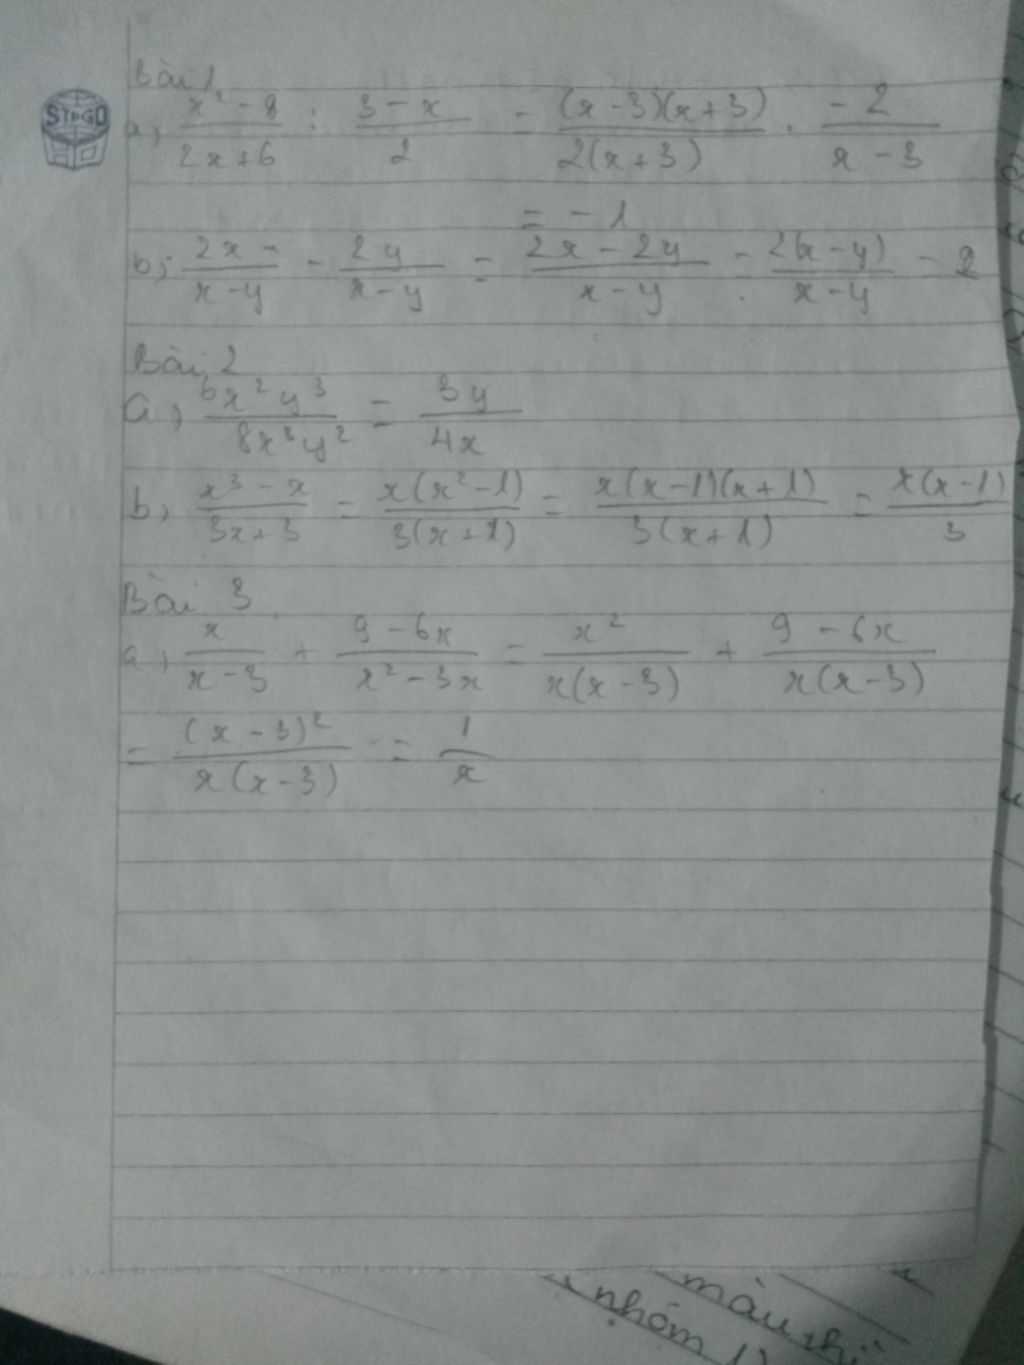 Bài 1
STAGO
a, (x² - 9)/(2x+6) : (3 - x)/2 = (x - 3)(x + 3)/2(x + 3) . - 2/(x - 3)
= - 1
b, 2x/(x - y) - 2y/(x - y) = (2x - 2y)/(x - y) = 2(x - y)/(x - y) = 2
Bài 2
a, 6x²y³/8x³y² = 3y/4x
b, (x³ - x)/(3x + 3) = x(x² - 1)/3(x + 1) = x(x - 1)(x + 1)/3(x + 1) = x(x - 1)/3
Bài 3
a, x/(x - 3) + (9 - 6x)/(x² - 3x) = x²/x(x - 3) + (9 - 6x)/x(x - 3)
= (x - 3)²/x(x - 3) = 1/x
màu
nhóm